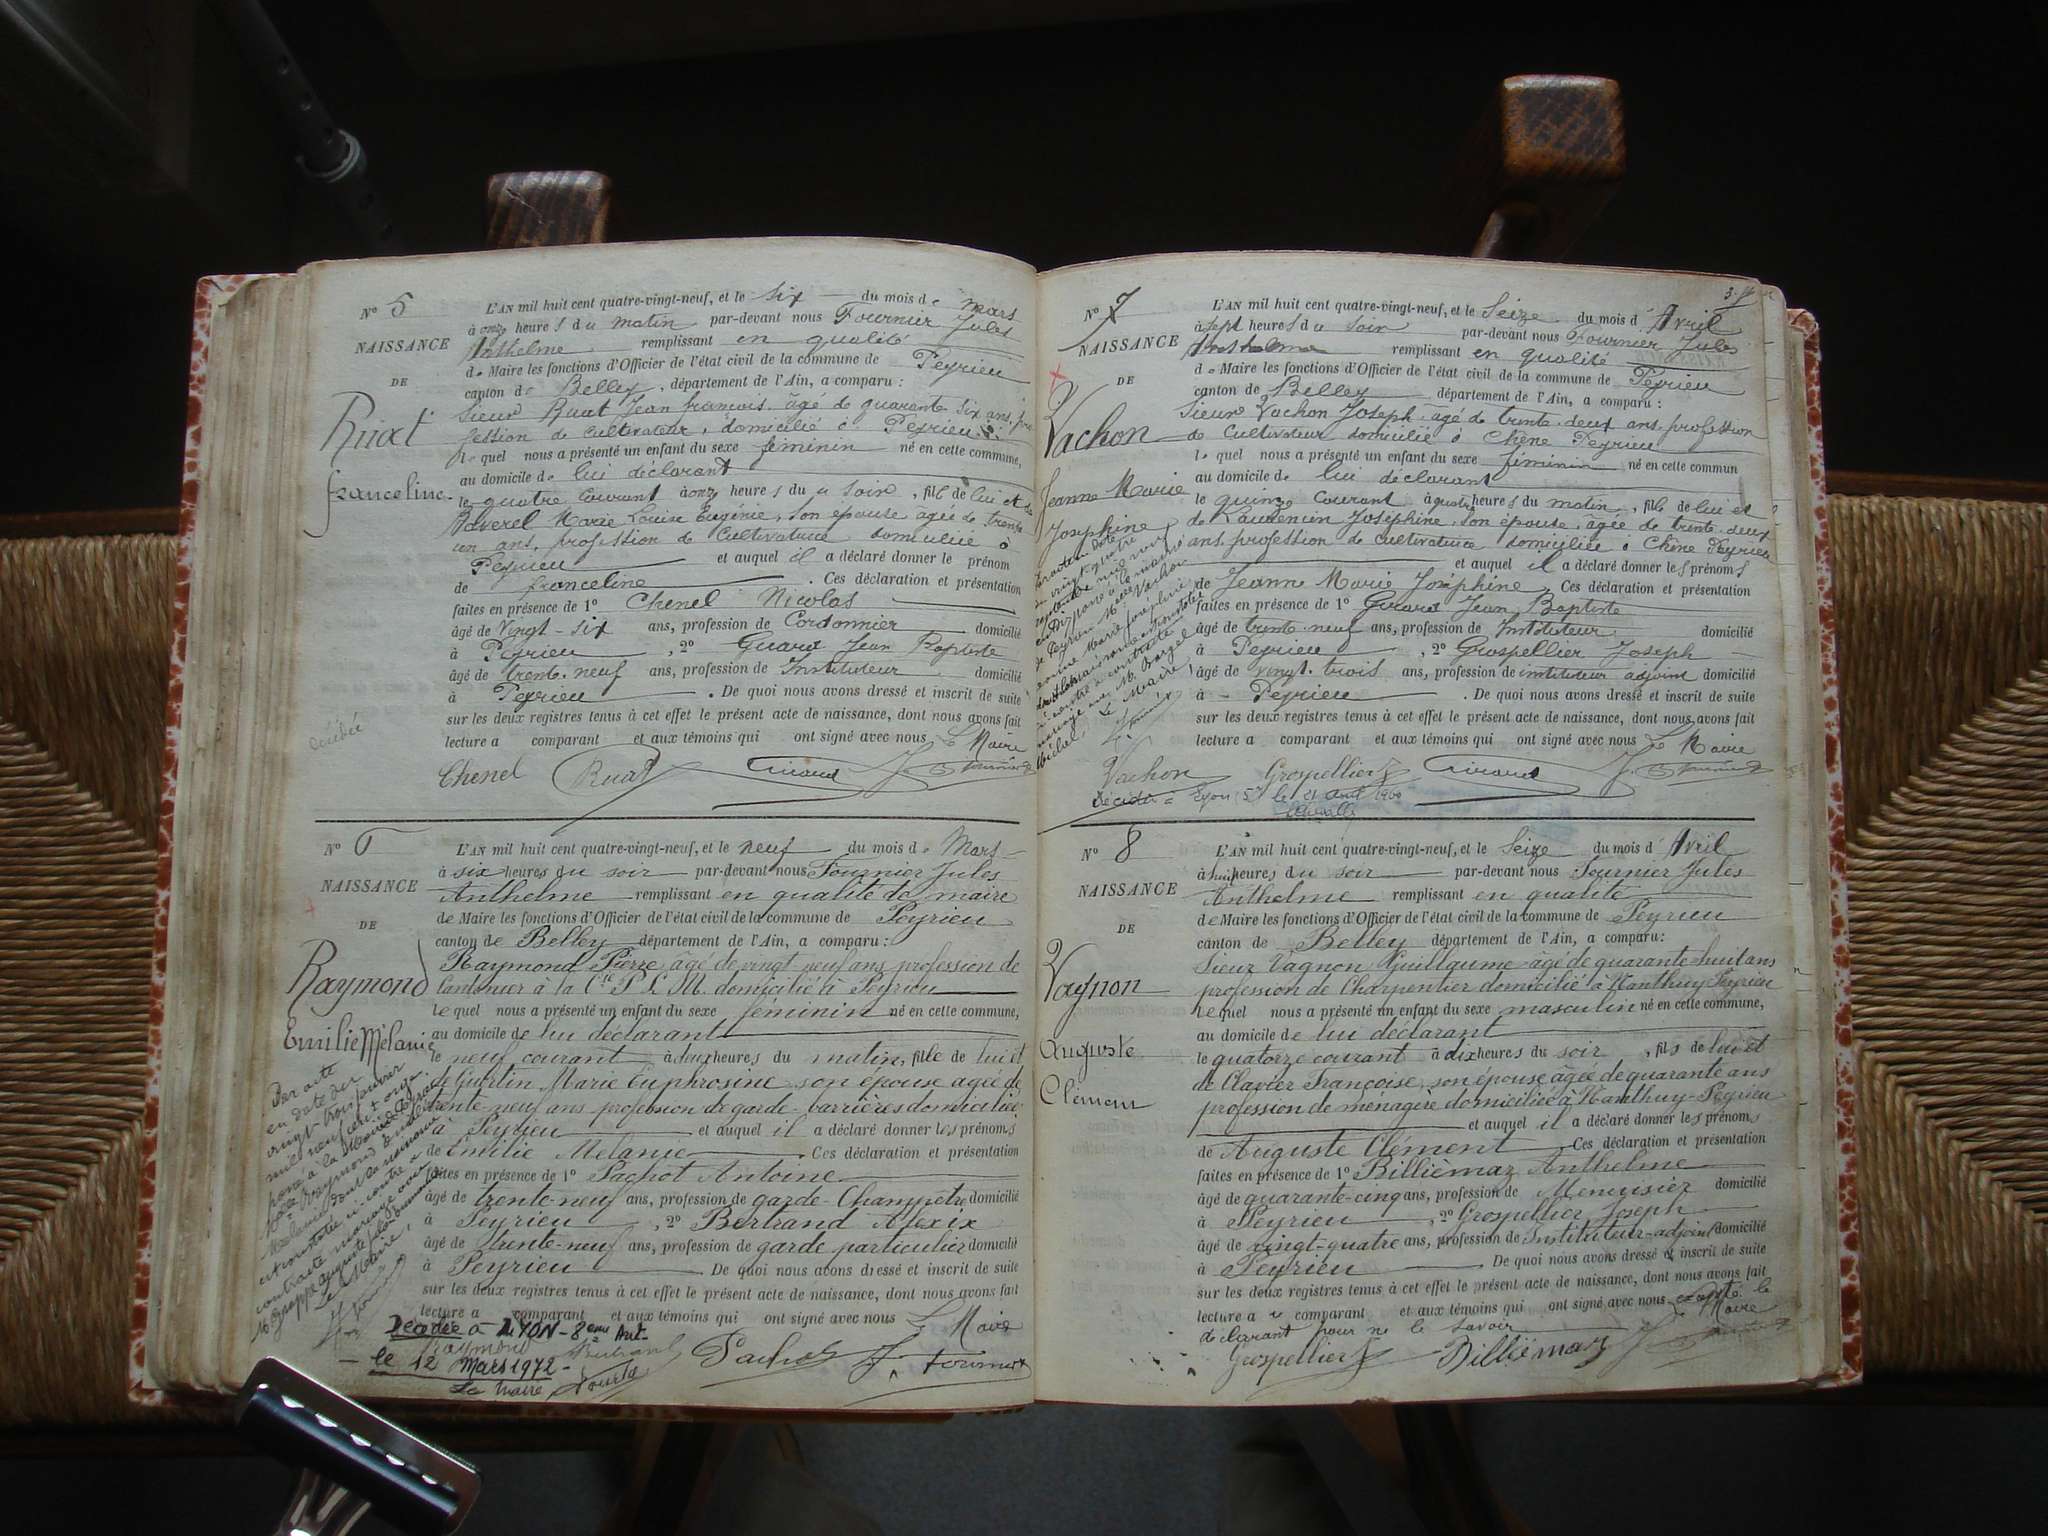 No 5
NAISSANCE
DE
Ruat
franceline
L'AN mil huit cent quatre-vingt-neuf, et le Six du mois de mars
à onze heures du matin par-devant nous Fournier Jules
Anthelme remplissant en qualité
de Maire les fonctions d'Officier de l'état civil de la commune de Peyrieu
canton de Belley, département de l'Ain, a comparu :
Sieur Ruat Jean francois, âgé de quarante six ans, pro
fession de cultivateur, domicilié à Peyrieu
le quel nous a présenté un enfant du sexe féminin né en cette commune,
au domicile de lui déclarant
le quatre courant à onze heures du soir, fille de lui et de
Marie Louise Eugénie, son épouse, âgée de trente
un ans, profession de cultivatrice domiciliée à
Peyrieu et auquel il a déclaré donner le prénom
de franceline. Ces déclaration et présentation
faites en présence de 1º Chenel Nicolas
âgé de vingt-six ans, profession de Cordonnier domicilié
à Peyrieu, 2º Girard Jean Baptiste
âgé de trente-neuf ans, profession de Instituteur domicilié
à Peyrieu. De quoi nous avons dressé et inscrit de suite
sur les deux registres tenus à cet effet le présent acte de naissance, dont nous avons fait
lecture a comparant et aux témoins qui ont signé avec nous Le Maire
décédée
Chenel Ruat Girard J. Fournier
No 6
NAISSANCE
DE
Raymond
Emilie Mélanie
L'AN mil huit cent quatre-vingt-neuf, et le neuf du mois de Mars
à six heures du soir par-devant nous Fournier Jules
Anthelme remplissant en qualité de maire
de Maire les fonctions d'Officier de l'état civil de la commune de Peyrieu
canton de Belley département de l'Ain, a comparu :
Raymond Pierre âgé de vingt neuf ans profession de
Cantonier à la Cie P. L. M. domicilié à Peyrieu
le quel nous a présenté un enfant du sexe féminin né en cette commune,
au domicile de lui déclarant
le neuf courant à deux heures du matin, fille de lui et
de Guertin Marie Euphrosine son épouse agée de
trente-neuf ans profession de garde-barrières domiciliée
à Peyrieu et auquel il a déclaré donner les prénoms
de Emilie Melanie. Ces déclaration et présentation
faites en présence de 1º Pachot Antoine
âgé de trente-neuf ans, profession de garde-Champêtre domicilié
à Peyrieu, 2º Bertrand Alexix
âgé de trente-neuf ans, profession de garde particulier domicilié
à Peyrieu De quoi nous avons dressé et inscrit de suite
sur les deux registres tenus à cet effet le présent acte de naissance, dont nous avons fait
lecture a comparant et aux témoins qui ont signé avec nous Le Maire
Par acte
en date du
vingt trois janvier
mil neuf cent onze
passé à la Mairie de
Raymond Emilie
Mélanie dont la naissance
est constatée ci contre a
contracté mariage avec
Le Maire
Décédée à LYON-8eme Arrt.
Raymond Bertrand Pachot J. Fournier
le 12 Mars 1972
Le Maire
No 7
NAISSANCE
DE
Vachon
Jeanne Marie
Josephine
L'AN mil huit cent quatre-vingt-neuf, et le Seize du mois d'Avril
à sept heures du soir par-devant nous Fournier Jules
Anthelme remplissant en qualité
de Maire les fonctions d'Officier de l'état civil de la commune de Peyrieu
canton de Belley département de l'Ain, a comparu :
Sieur Vachon Joseph, âgé de trente deux ans, profession
de cultivateur domicilié à Chêne Peyrieu
le quel nous a présenté un enfant du sexe féminin né en cette commun
au domicile de lui déclarant
le quinze courant à quatre heures du matin, fille de lui et
de Josephine, son épouse, âgée de trente-deux
ans, profession de cultivatrice domiciliée à Chêne Peyrieu
et auquel il a déclaré donner les prénoms
de Jeanne Marie Joséphine. Ces déclaration et présentation
faites en présence de 1º Girard Jean Baptiste
âgé de trente-neuf ans, profession de Instituteur domicilié
à Peyrieu, 2º Grospellier Joseph
âgé de vingt-trois ans, profession de instituteur adjoint domicilié
à Peyrieu. De quoi nous avons dressé et inscrit de suite
sur les deux registres tenus à cet effet le présent acte de naissance, dont nous avons fait
lecture a comparant et aux témoins qui ont signé avec nous Le Maire
Vachon Grospellier Girard J. Fournier
Décédée à Lyon (5e) le 21 Avril 1960
No 8
NAISSANCE
DE
Vagnon
Auguste
Clément
L'AN mil huit cent quatre-vingt-neuf, et le Seize du mois d'Avril
à huit heures du soir par-devant nous Fournier Jules
Anthelme remplissant en qualité
de Maire les fonctions d'Officier de l'état civil de la commune de Peyrieu
canton de Belley département de l'Ain, a comparu :
Sieur Vagnon Guillaume âgé de quarante-huit ans
profession de Charpentier domicilié à Nanthuy-Peyrieu
le quel nous a présenté un enfant du sexe masculin né en cette commune,
au domicile de lui déclarant
le quatorze courant à dix heures du soir, fils de lui et
de Clavier Françoise, son épouse âgée de quarante ans
profession de ménagère domiciliée à Nanthuy-Peyrieu
et auquel il a déclaré donner les prénoms
de Auguste Clément Ces déclaration et présentation
faites en présence de 1º Billiémaz Anthelme
âgé de quarante-cinq ans, profession de Menuisier domicilié
à Peyrieu, 2º Grospellier Joseph
âgé de vingt-quatre ans, profession de Instituteur-adjoint domicilié
à Peyrieu De quoi nous avons dressé et inscrit de suite
sur les deux registres tenus à cet effet le présent acte de naissance, dont nous avons fait
lecture a comparant et aux témoins qui ont signé avec nous excepté le
déclarant pour ne le savoir Le Maire
Grospellier Billiémaz